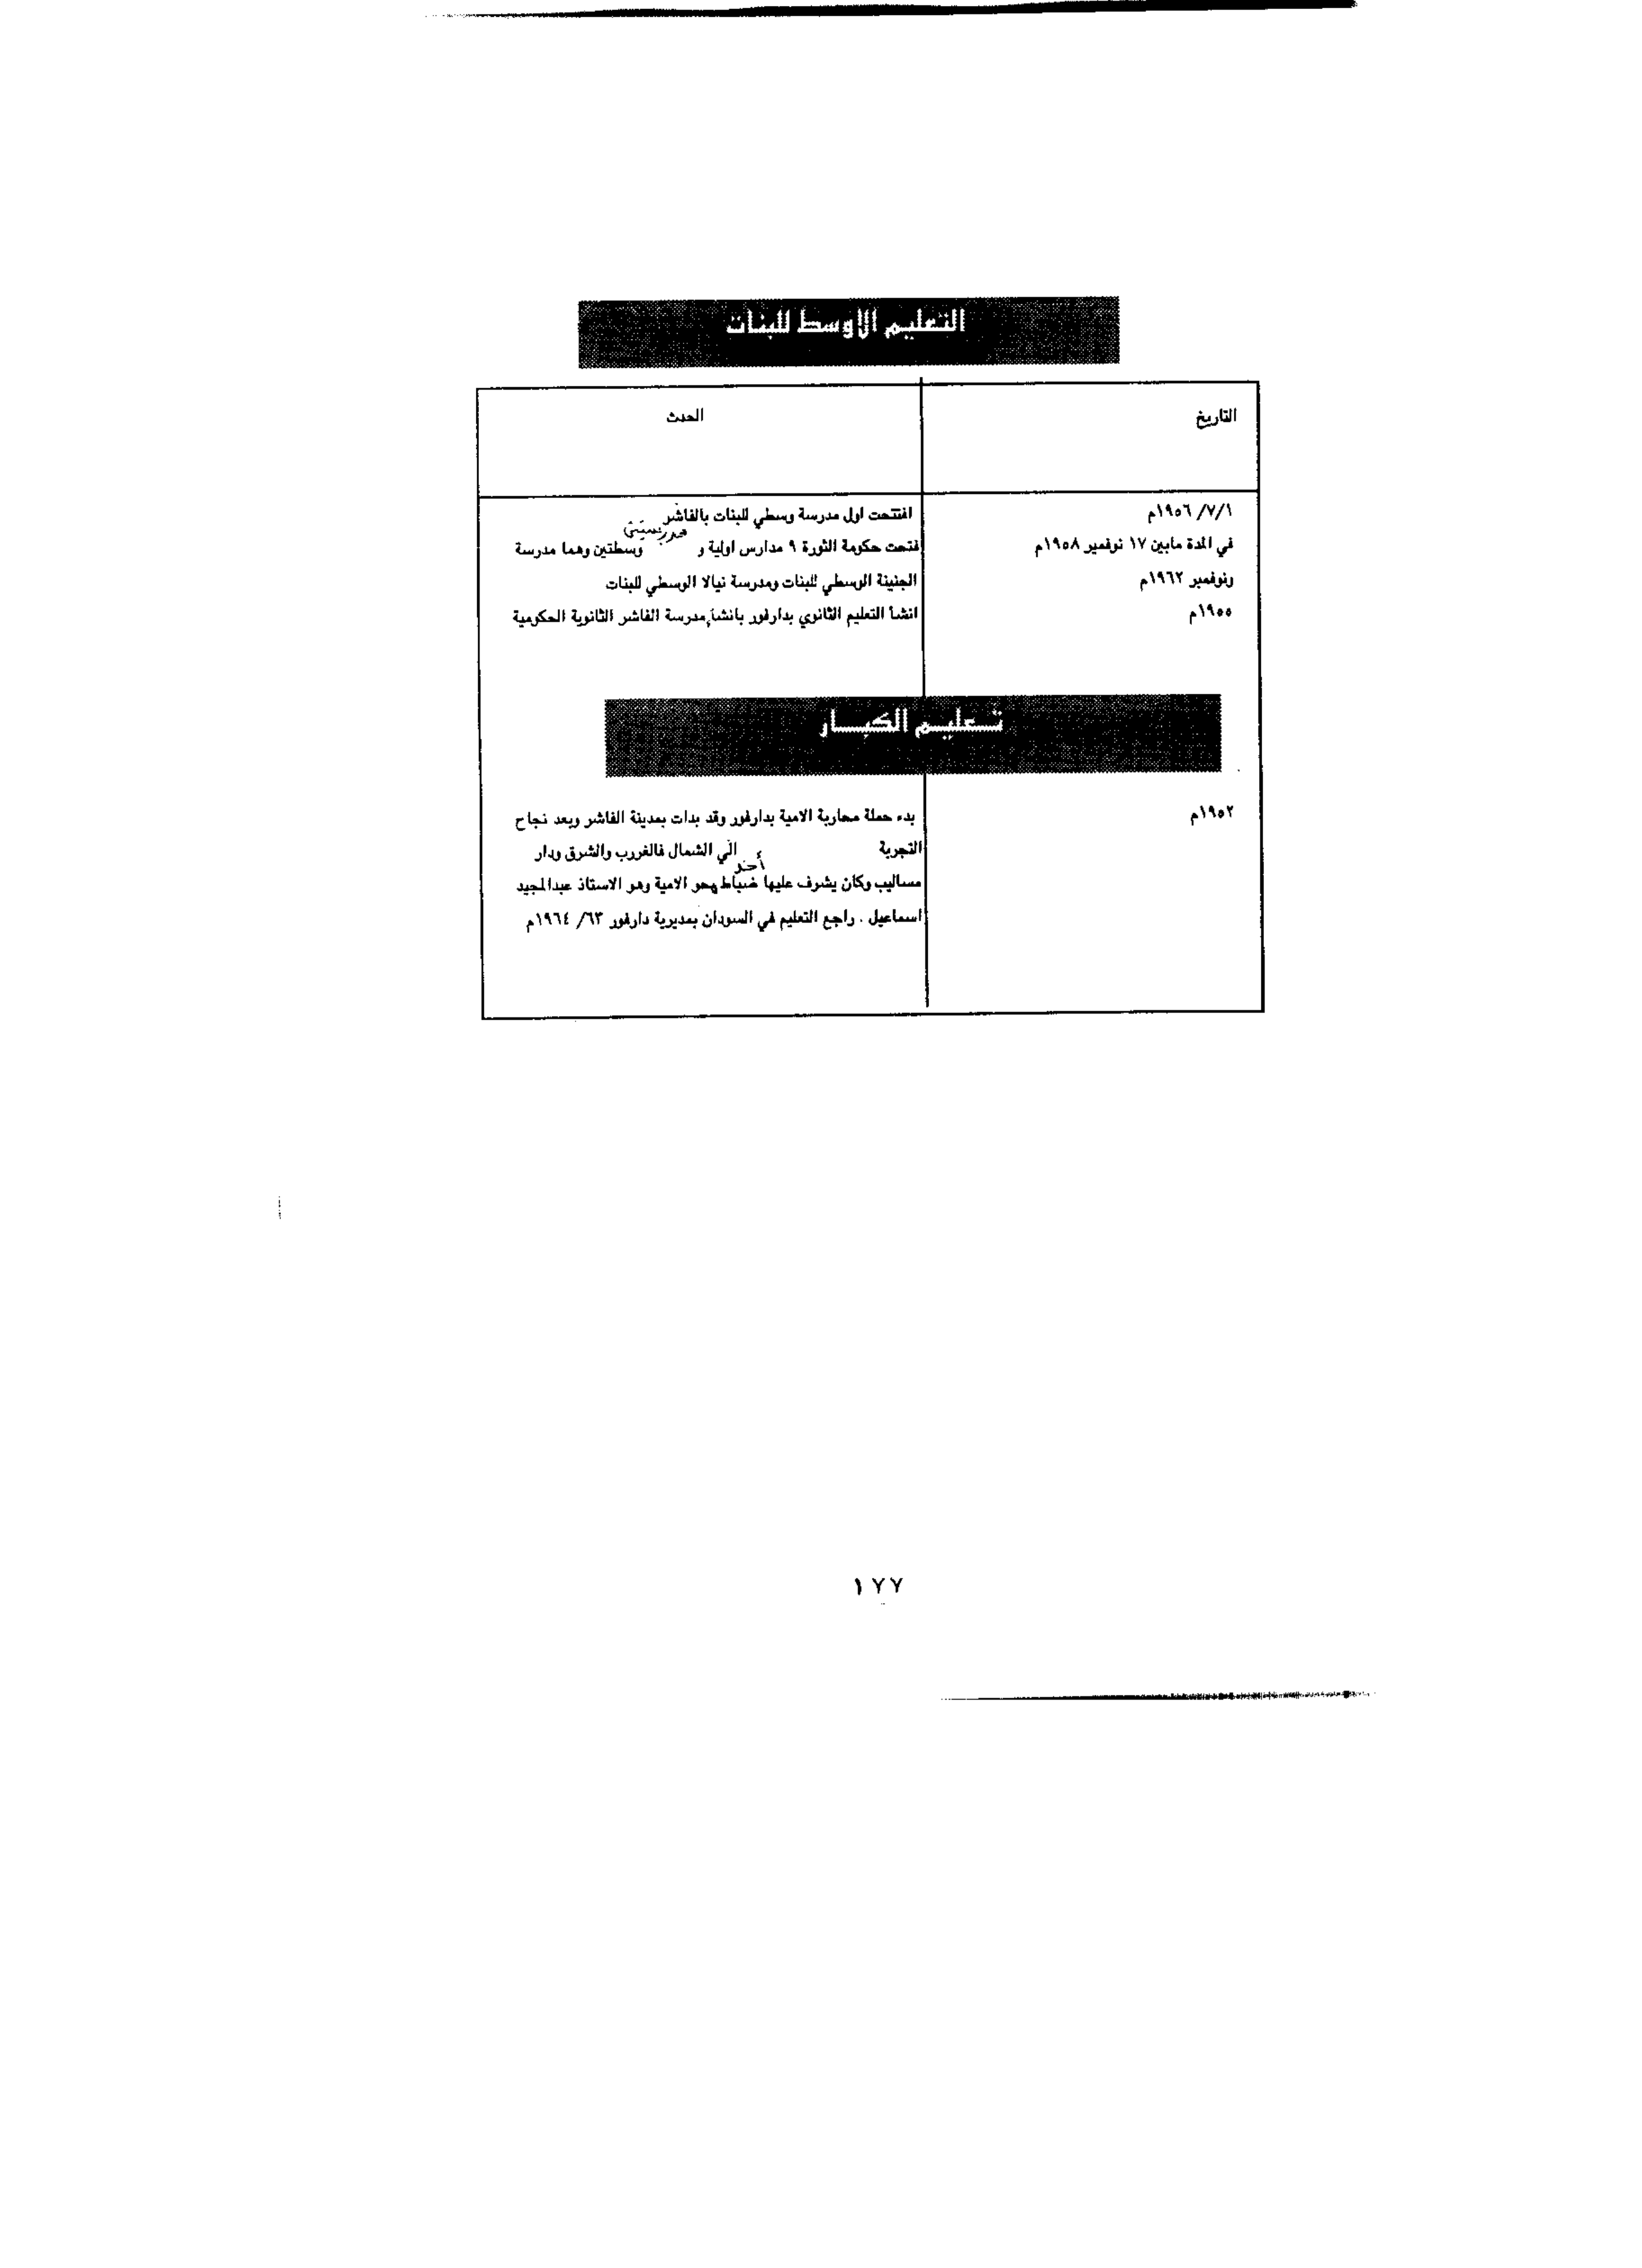 التعليم الاوسط للبنات
التاريخ
الحدث
١/٧/ ١٩٥٦م
افتتحت اول مدرسة وسطي للبنات بالفاشر
في المدة مابين ١٧ نوفمبر ١٩٥٨م
فتحت حكومة الثورة ٩ مدارس اولية و مدرستين وسطتين وهما مدرسة
ونوفمبر ١٩٦٢م
الجنينة الوسطي للبنات ومدرسة نيالا الوسطي للبنات
١٩٥٥م
انشأ التعليم الثانوي بدارفور بانشاء مدرسة الفاشر الثانوية الحكومية
تعليم الكبار
١٩٥٢م
بدء حملة محاربة الامية بدارفور وقد بدات بمدينة الفاشر وبعد نجاح
التجربة الي الشمال فالغررب والشرق ودار
مساليب وكان يشرف عليها أحد ضباط محو الامية وهو الاستاذ عبدالمجيد
اسماعيل . راجع التعليم في السودان بمديرية دارفور ٦٣/ ١٩٦٤م
١٧٧